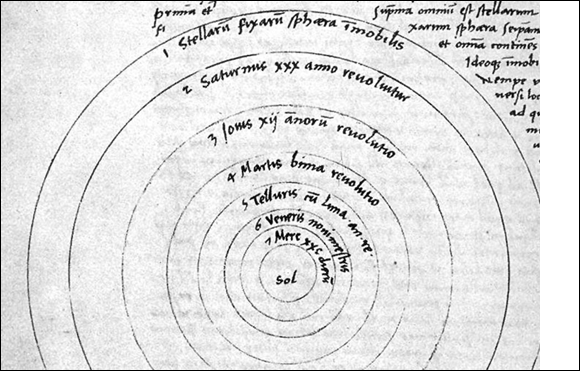 prima et
fi
Suprema omniū est stellarum
xarum sphæra seipsam
et omnia continens
Ideoq; imobi
Nempe v
versi loc
ad qu
m
u
1 Stellarū fixarū sphæra īmobilis
2 Saturnus xxx anno revolvitur
3 Jouis xij ānorū reuolutio
4 Martis bima reuolutio
5 Telluris cū Luna. an. re.
6 Veneris nonimestris
7 Merc xxc dierū
Sol